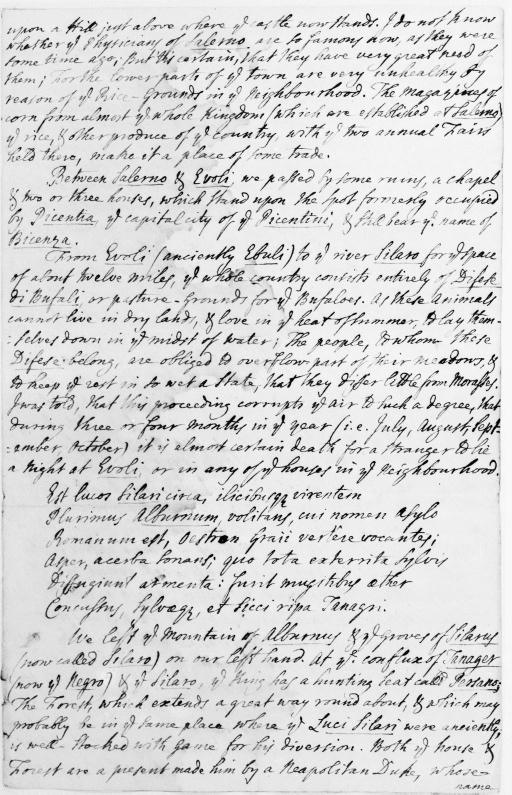 upon a Hill just above where yᵉ castle now stands. I do not know
whether yᵉ Physicians of Salerno are so famous now, as they were
some time ago; But 'tis certain, that they have very great need of
them; for the lower parts of yᵉ town are very unhealthy by
reason of yᵉ Rice-Grounds in yᵉ Neighbourhood. The magazines of
corn from almost yᵉ whole Kingdom (which are established at Salerno)
yᵉ rice, & other produce of yᵉ country, with yᵉ two annual Fairs
held there, make it a place of some trade.
Between Salerno & Evoli, we passed by some ruins, a chapel
& two or three houses, which stand upon the spot formerly occupied
by Picentia, yᵉ capital city of yᵉ Picentini, & still bear yᵉ name of
Bicenza.
From Evoli (anciently Ebuli) to yᵉ river Silaro for yᵉ space
of about twelve miles, yᵉ whole country consists entirely of Difese
di Bufali, or pasture-grounds for yᵉ Bufaloes. As these Animals
cannot live in dry lands, & love in yᵉ heat of summer, to lay them-
:selves down in yᵉ midst of water; the people, to whom these
Difese belong, are obliged to overflow part of their meadows, &
to keep yᵉ rest in so wet a state, that they differ little from Morasses.
I was told, that this proceeding corrupts yᵉ air to such a degree, that
during three or four months in yᵉ year (i.e. July, August, Sept-
:ember, October) it is almost certain death for a stranger to lie
a night at Evoli, or in any of yᵉ houses in yᵉ Neighbourhood.
Est lucos Silari circa, ilicibusqꝫ virentem
Plurimus Alburnum, volitans, cui nomen asylo
Romanum est, Oestron Graii vertere vocantes;
Asper, acerba sonans; quo tota exterrita sylvis
Diffugiunt armenta: furit mugitibus æther
Concussus, sylvæqꝫ, et sicci ripa Tanagri.
We left yᵉ Mountain of Alburnus & yᵉ groves of Silarus
(now called Silaro) on our left hand. At yᵉ conflux of Tanager
(now yᵉ Negro) & yᵉ Silaro, yᵉ King has a hunting seat call'd Persano;
The Forest, which extends a great way round about, & which may
probably be in yᵉ same place where yᵉ Luci Silari were anciently,
is well-stocked with game for his diversion. Both yᵉ house &
Forest are a present made him by a Neapolitan Duke, whose
name